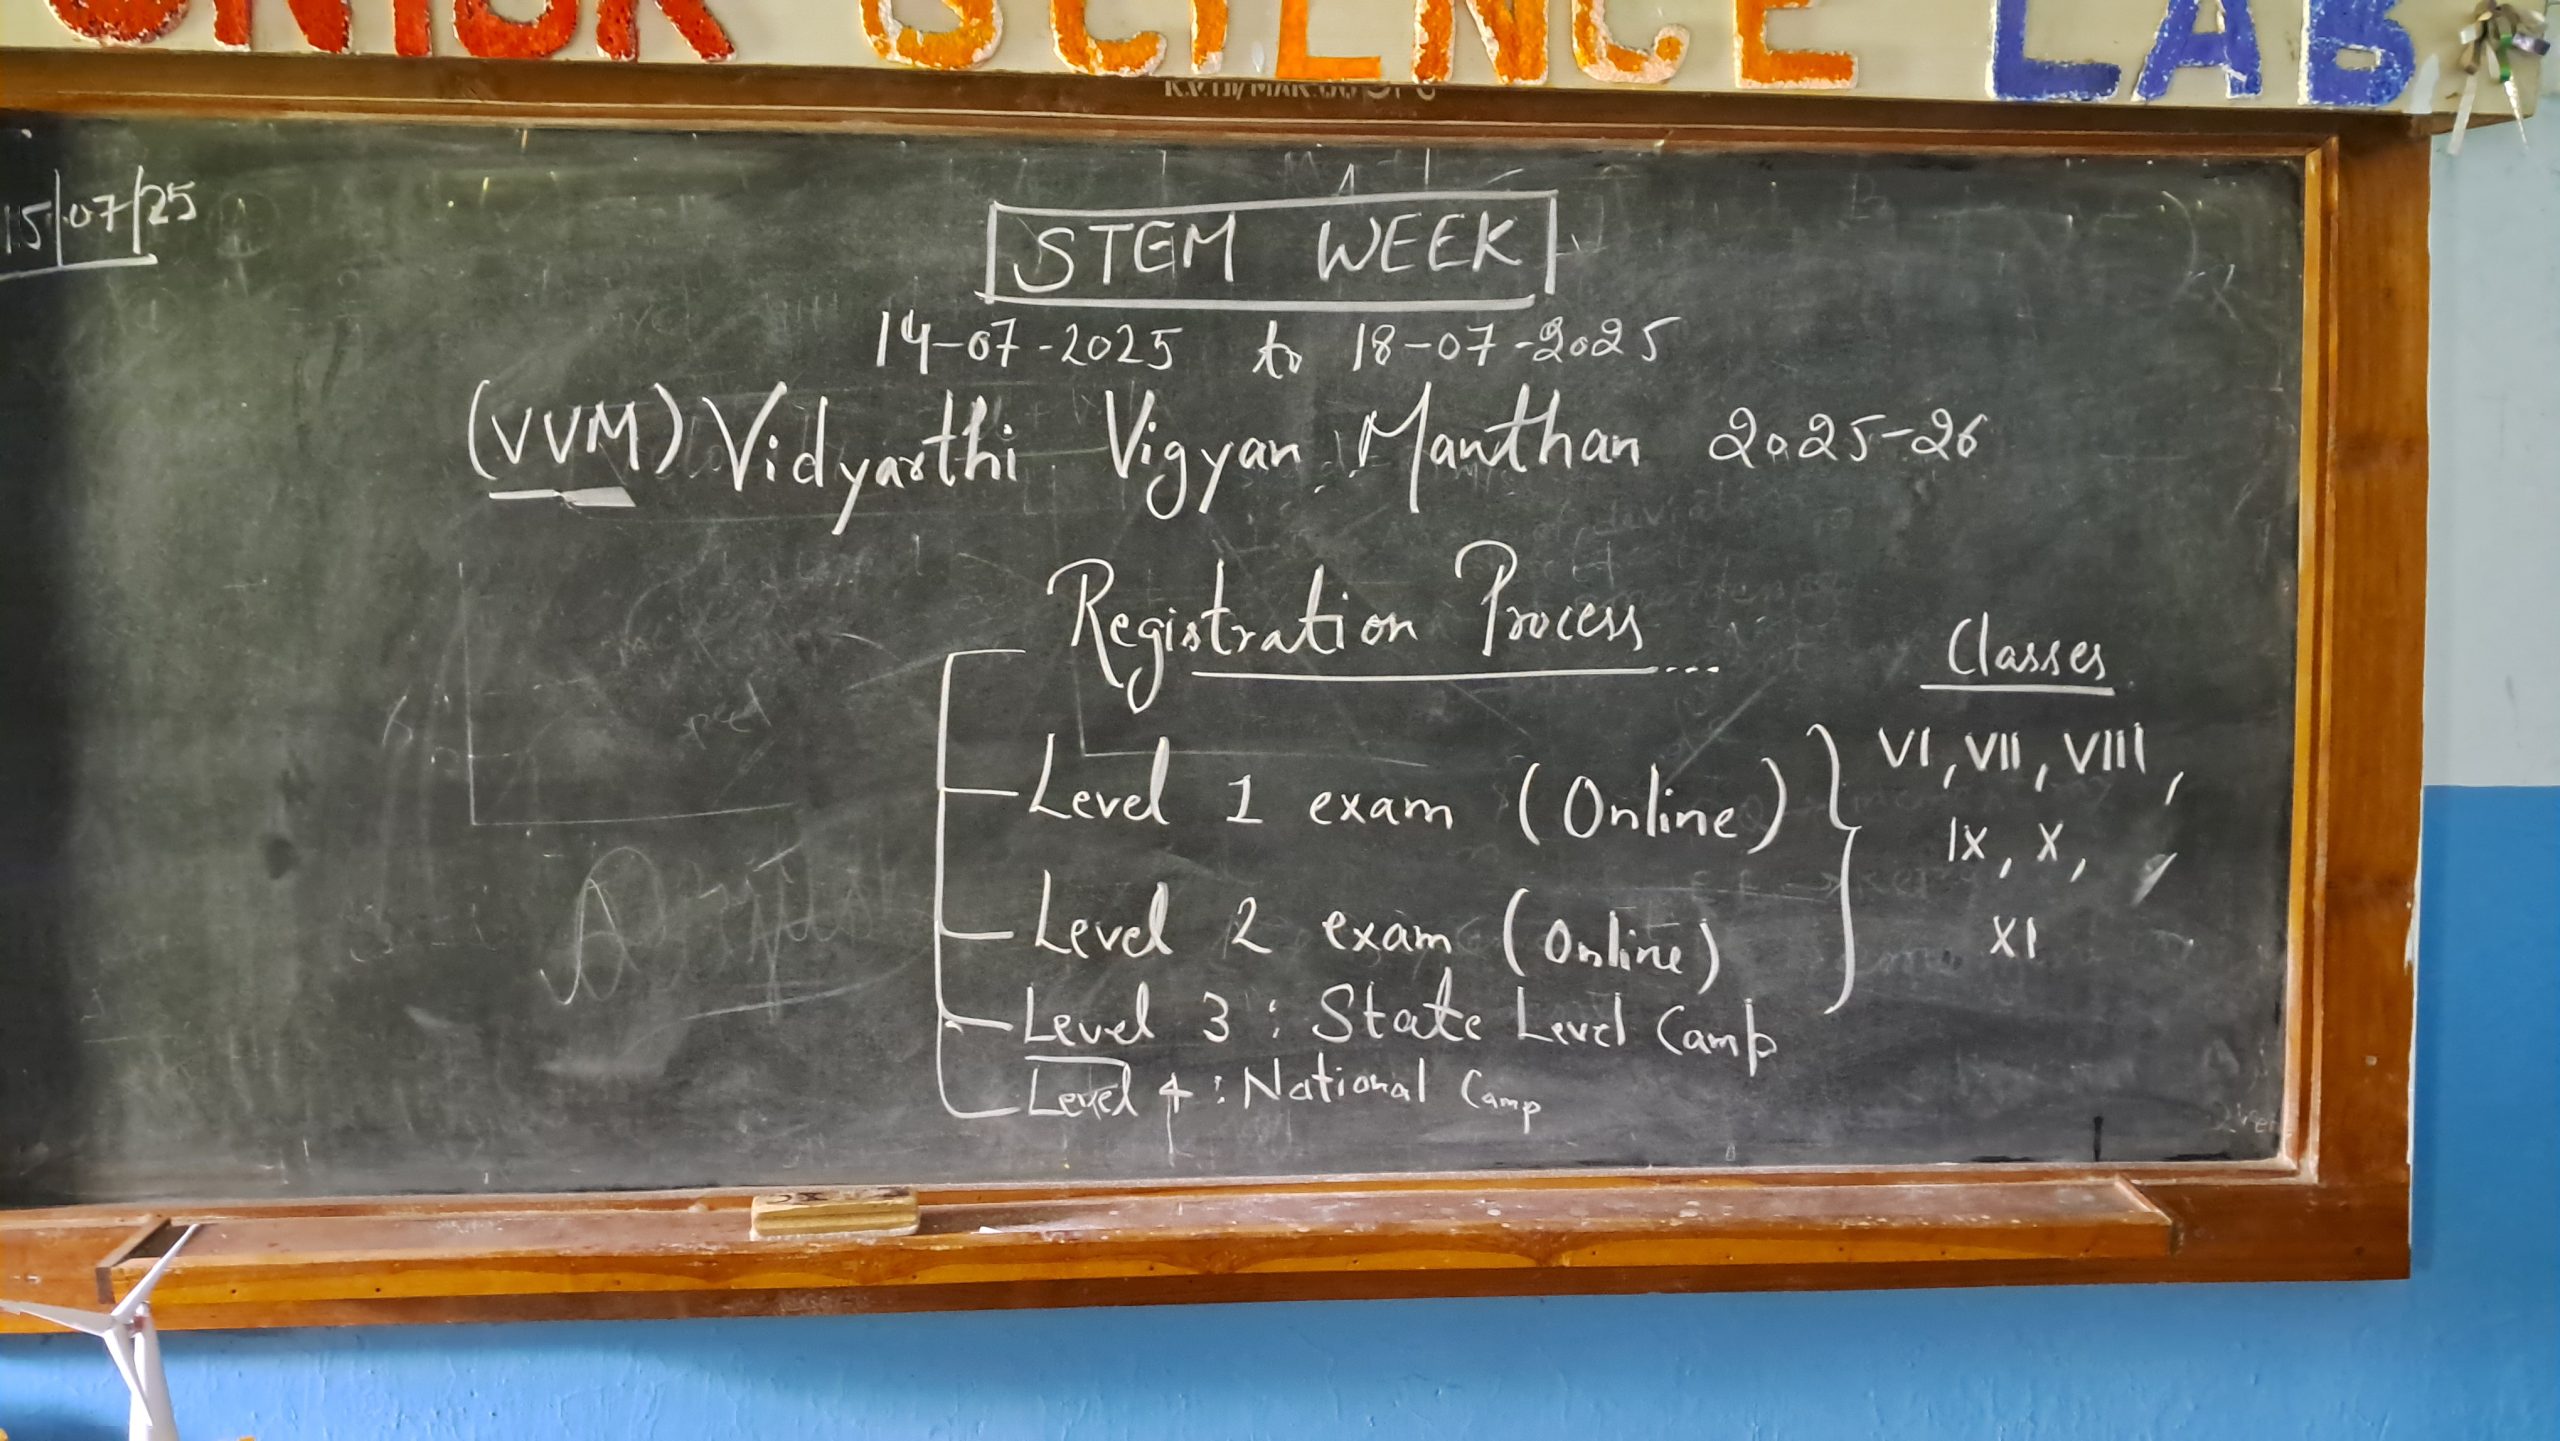 JUNIOR SCIENCE LAB
15/07/25
STEM WEEK
14-07-2025 to 18-07-2025
(VVM) Vidyarthi Vigyan Manthan 2025-26
Registration Process...
Level 1 exam (Online)
Level 2 exam (Online)
Level 3 : State Level Camp
Level 4 : National Camp
Classes
VI, VII, VIII,
IX, X,
XI